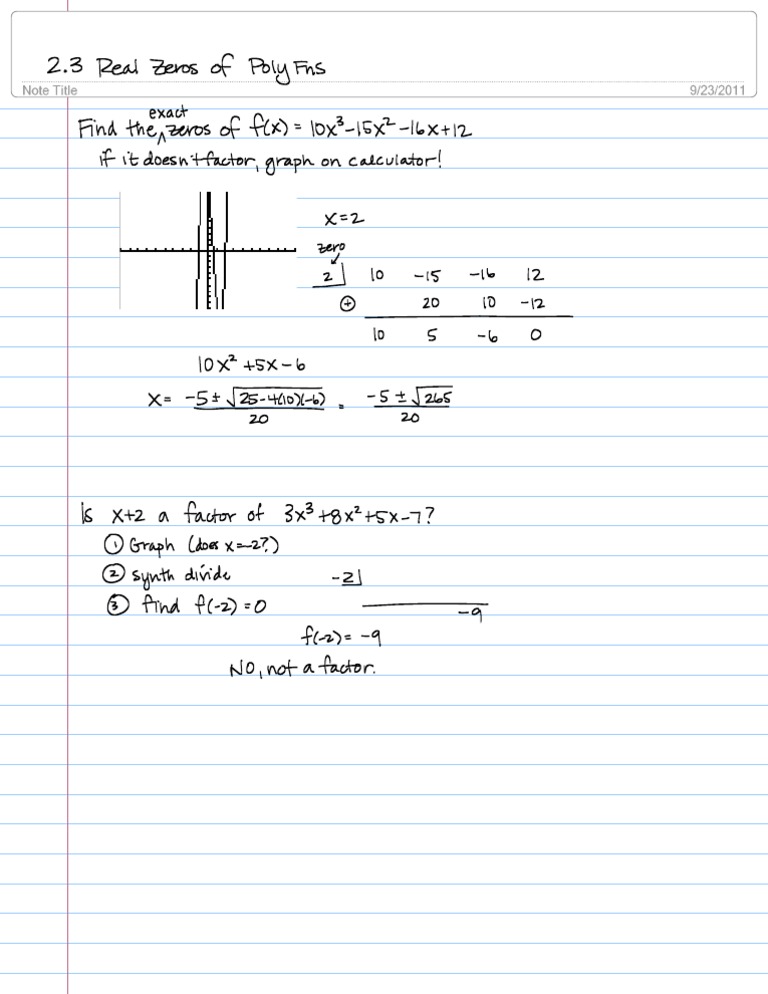 2.3 Real Zeros of Poly Fns
Note Title
9/23/2011
exact
Find the ^ zeros of f(x) = 10x³-15x²-16x+12
if it doesn't factor, graph on calculator!
x=2
zero
2 10 -15 -16 12
⊕ 20 10 -12
10 5 -6 0
10x²+5x-6
x= -5 ± √25-4(10)(-6) / 20 = -5 ± √265 / 20
Is x+2 a factor of 3x³+8x²+5x-7?
① Graph (does x=-2?)
② synth divide -2
③ find f(-2)=0 -9
f(-2)= -9
NO, not a factor.